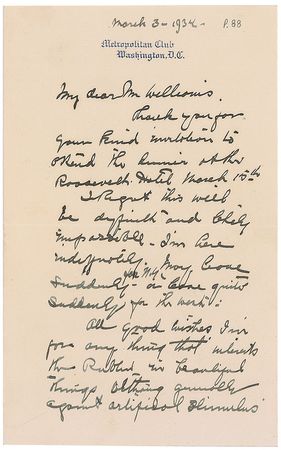 March 3 - 1934 - P. 88
Metropolitan Club
Washington, D.C.
My dear Mr Williams.
Thank you for
your kind invitation to
attend the dinner at the
Roosevelt Hotel March 15th
I regret this will
be difficult and likely
impossible - I'm here
indefinitely. May leave
suddenly - or leave quite
for NY
suddenly for the west.
All good wishes I'm
for any thing that interests
the Public in beautiful
things
against artificial stimulus